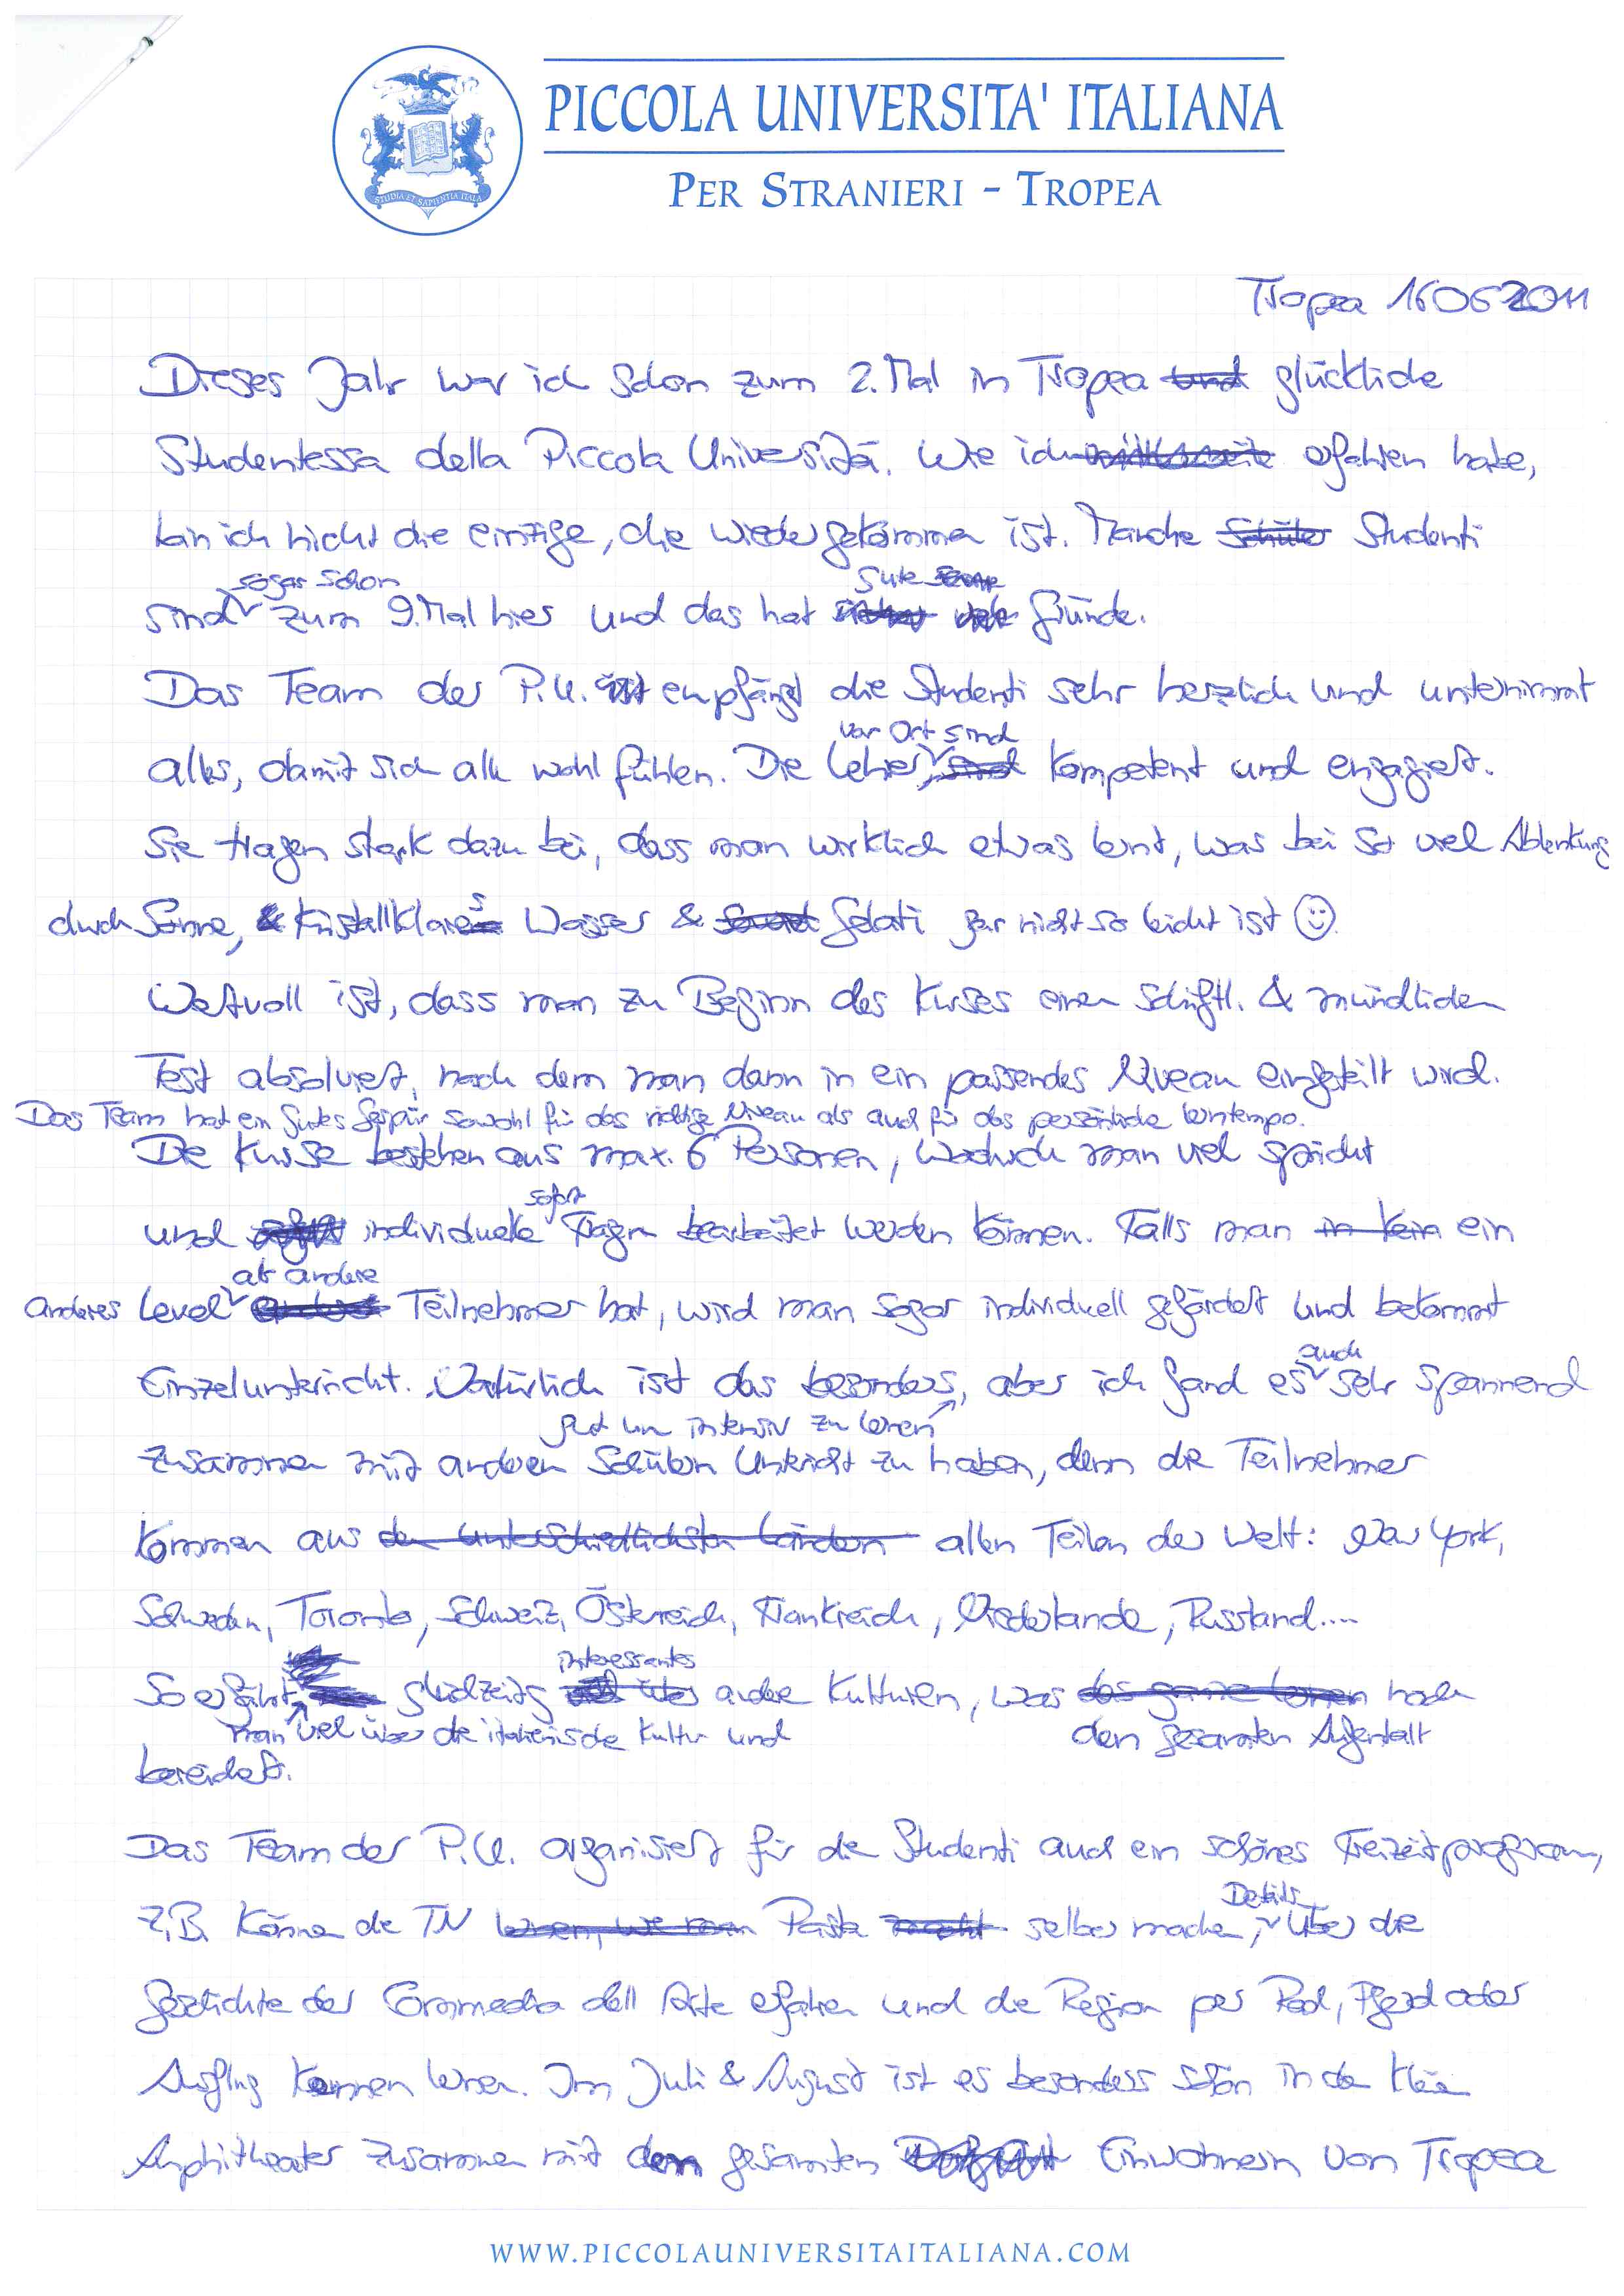 STUDIA ET SAPIENTIA ITALA
PICCOLA UNIVERSITA' ITALIANA
PER STRANIERI - TROPEA
Tropea 16062011
Dieses Jahr war ich schon zum 2. Mal in Tropea und glückliche
Studentessa della Piccola Università. Wie ich mittlerweile erfahren habe,
bin ich nicht die einzige, die wiedergekommen ist. Manche Schüler Studenti
sogar schon gute
sind zum 9. Mal hier und das hat viele Gründe.
Das Team der P.U. ist empfängt die Studenti sehr herzlich und unternimmt
vor Ort sind
alles, damit sich alle wohl fühlen. Die Lehrer, sind kompetent und engagiert.
Sie tragen stark dazu bei, dass man wirklich etwas lernt, was bei so viel Ablenkung
durch Sonne, & kristallklares Wasser & Gelati gar nicht so leicht ist ☺.
Wertvoll ist, dass man zu Beginn des Kurses einen schriftl. & mündlichen
Test absolviert, nach dem man dann in ein passendes Niveau eingeteilt wird.
Das Team hat ein gutes Gespür sowohl für das richtige Niveau als auch für das persönliche Lerntempo.
Die Kurse bestehen aus max. 6 Personen, wodurch man viel spricht
sofort
und individuelle Fragen bearbeitet werden können. Falls man in kein ein
als andere
anderes Level Teilnehmer hat, wird man sogar individuell gefördert und bekommt
auch
Einzelunterricht. Natürlich ist das besonders, aber ich fand es sehr spannend
gut um intensiv zu lernen
zusammen mit anderen Schülern Unterricht zu haben, denn die Teilnehmer
kommen aus den unterschiedlichsten Ländern allen Teilen der Welt: New York,
Schweden, Toronto, Schweiz, Österreich, Frankreich, Niederlande, Russland....
interessantes
So erfährt gleichzeitig viel über andere Kulturen, was das ganze Lernen noch
man viel über die italienische Kultur und den gesamten Aufenthalt
bereichert.
Das Team der P.U. organisiert für die Studenti auch ein schönes Freizeitprogramm,
Details
z.B. können die TN lernen, wie man Pasta macht selber machen, über die
Geschichte der Commedia dell Arte erfahren und die Region per Rad, Pferd oder
Ausflug kennen lernen. Im Juli & August ist es besonders schön in dem kleinen
Amphitheater zusammen mit den gesamten Einwohnern von Tropea
WWW.PICCOLAUNIVERSITAITALIANA.COM